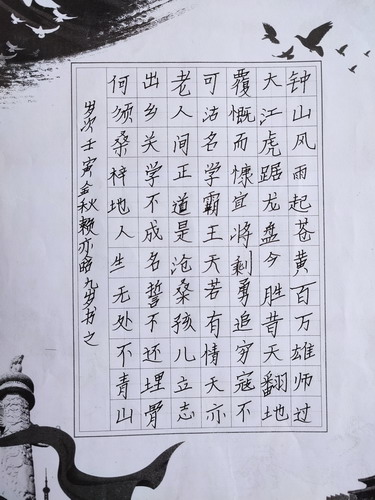 钟山风雨起苍黄百万雄师过
大江虎踞龙盘今胜昔天翻地
覆慨而慷宜将剩勇追穷寇不
可沽名学霸王天若有情天亦
老人间正道是沧桑孩儿立志
出乡关学不成名誓不还埋骨
何须桑梓地人生无处不青山
岁次壬寅金秋赖亦九岁书之